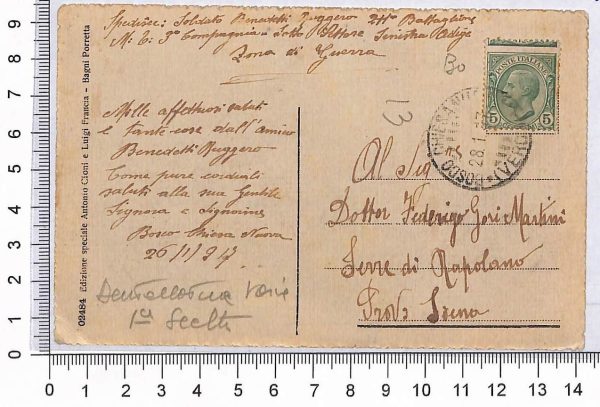 Spedisce: Soldato Benedetti Ruggero 244° Battaglione
M. T. 3ª Compagnia Sotto Settore Sinistra Adige
Zona di Guerra
Mille affettuosi saluti
e tante cose dall'amico
Benedetti Ruggero
Come pure cordiali
saluti alla sua Gentile
Signora e Signorine
Bosco Chiesa Nuova
26/1/917
1ª Scelta
02484 Edizione speciale Antonio Cioni e Luigi Francia - Bagni Porretta
POSTE ITALIANE
5 5
BOSCO CHIESANUOVA
28.1
(VERONA)
13
Al Sig
Dottor Federigo Gori Martini
Serre di Rapolano
Prov. Siena
9
8
7
6
5
4
3
2
1
0
0 1 2 3 4 5 6 7 8 9 10 11 12 13 14